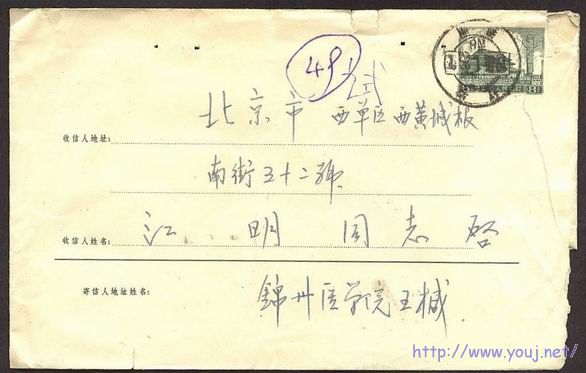 49
试
收信人地址:
北京市 西单区西黄城根
南街五十二號
收信人姓名: 江明同志启
寄信人地址姓名: 錦州医学院王械
http://www.youj.net/